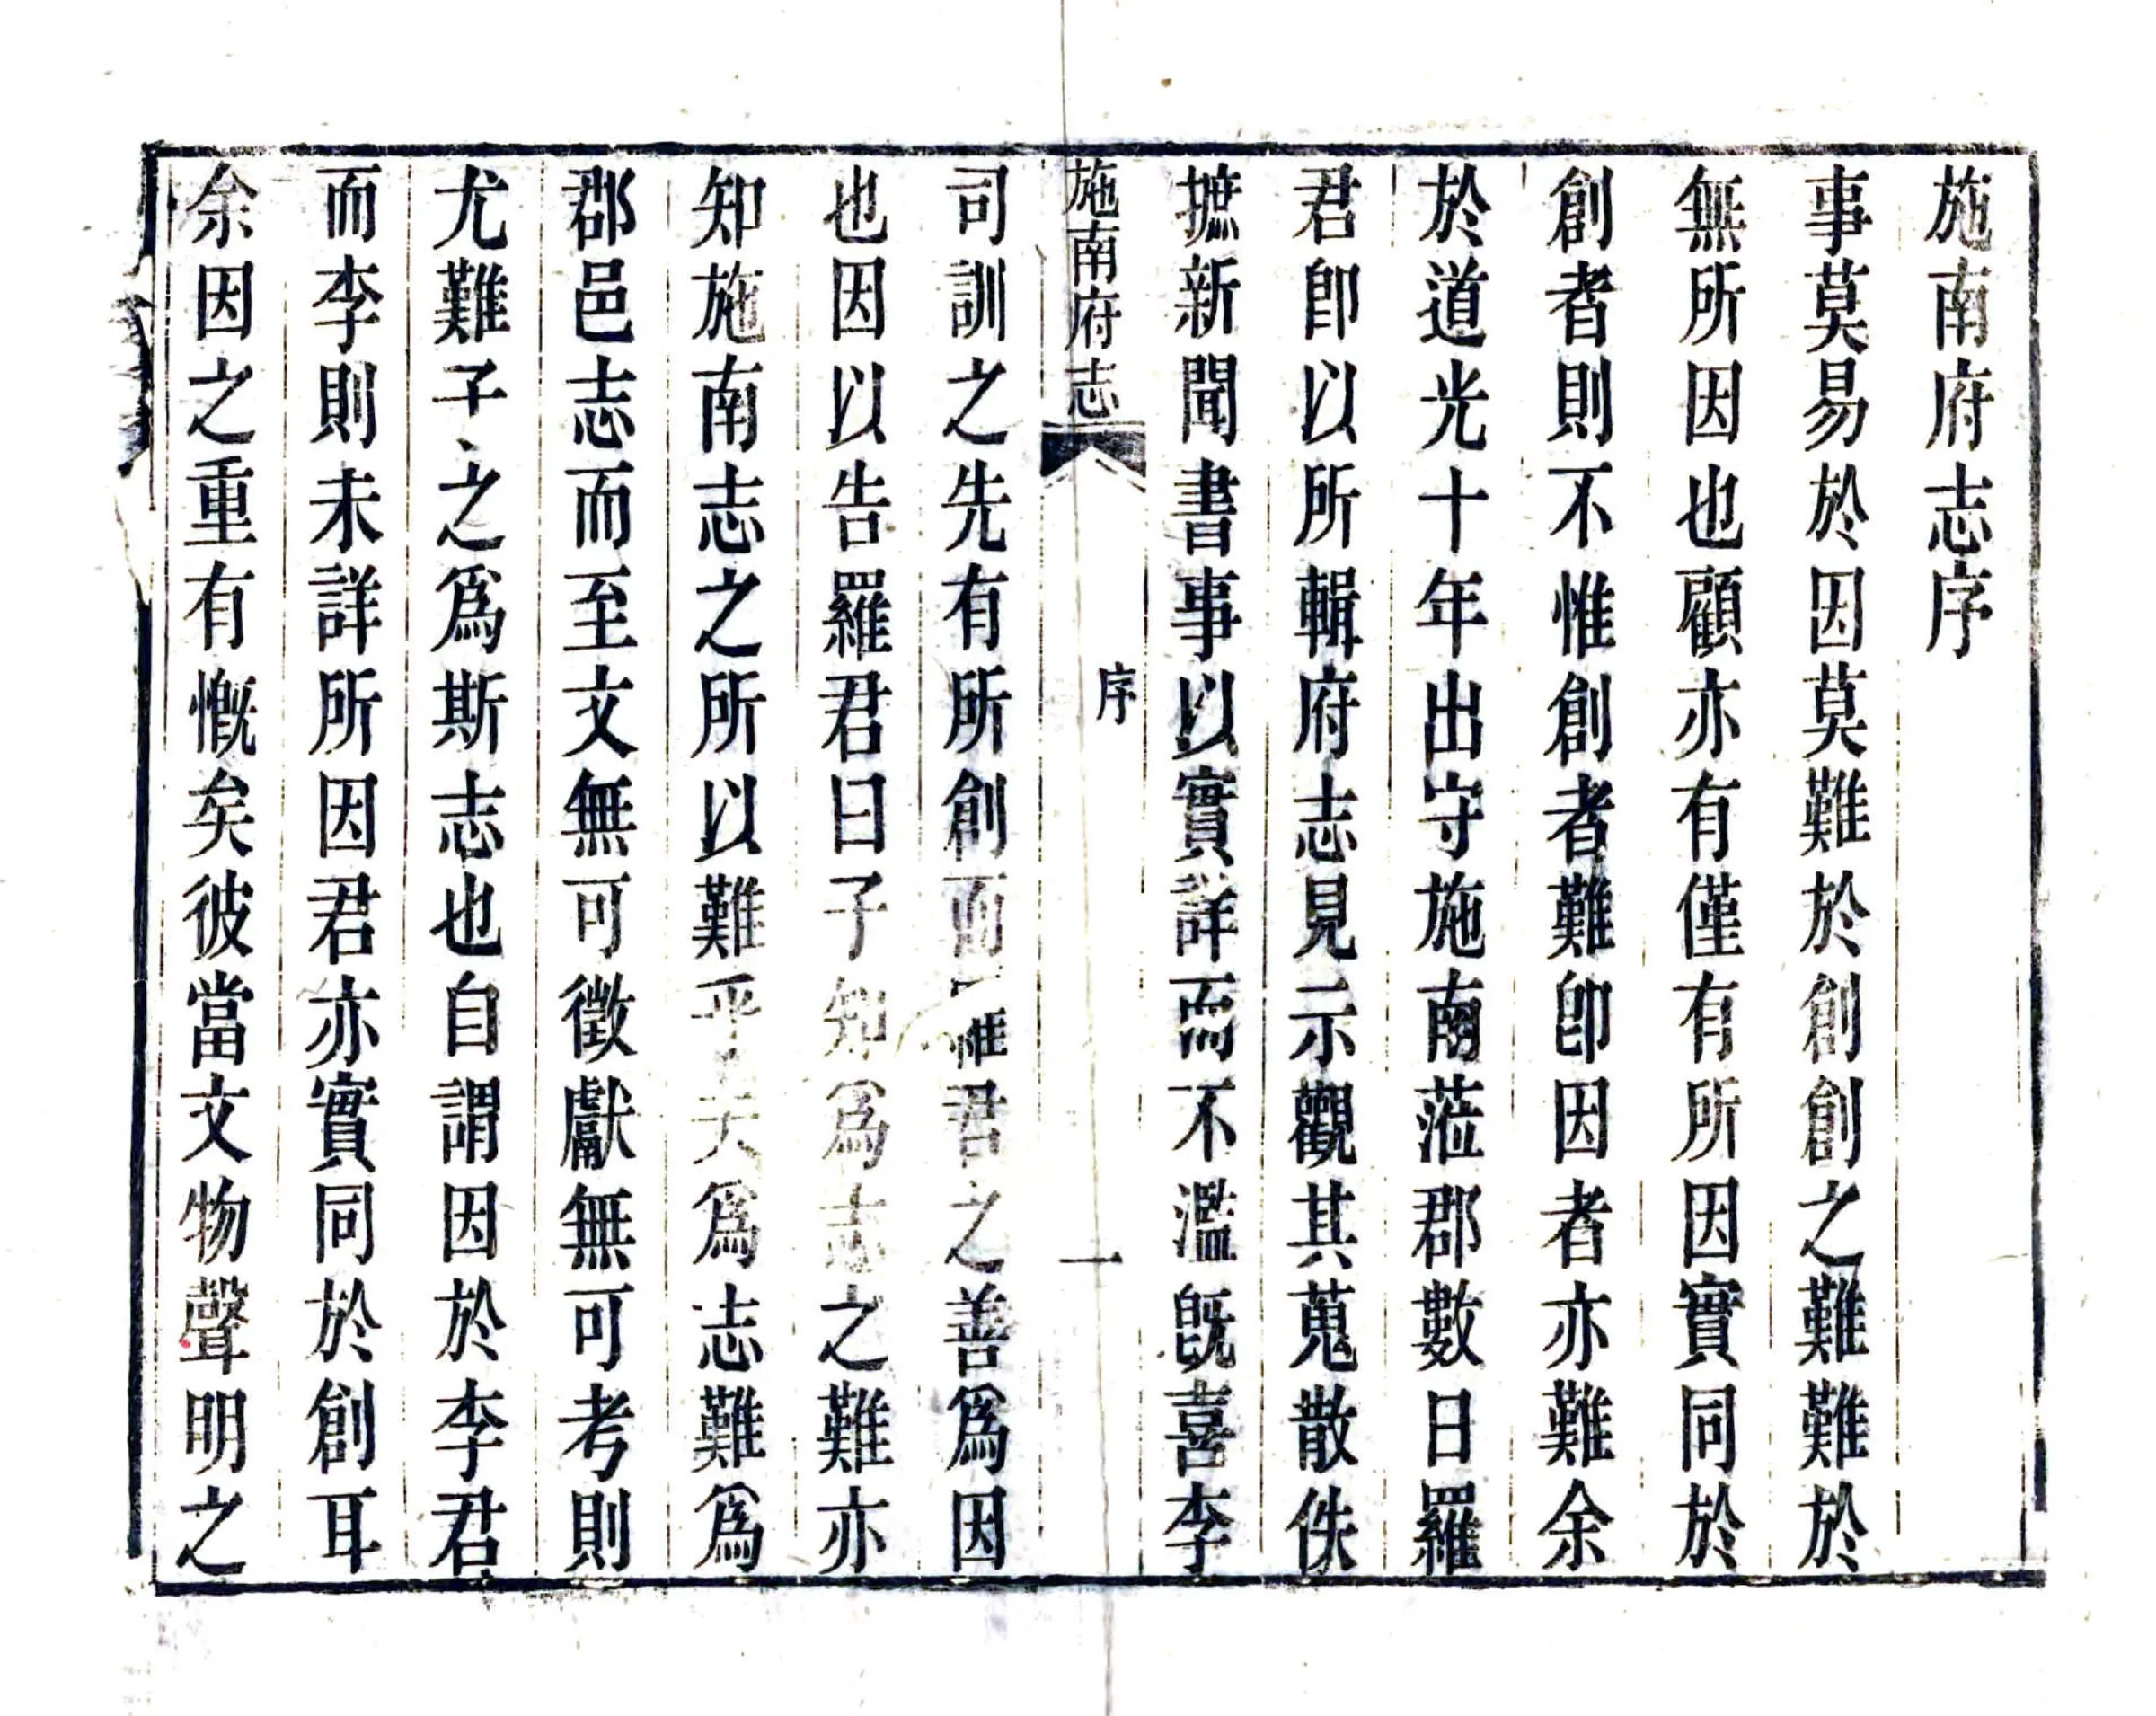 施南府志序
事莫易於因莫難於創創之難難於
無所因也顧亦有僅有所因實同於
創者則不惟創者難卽因者亦難余
於道光十年出守施南蒞郡數日羅
君卽以所輯府志見示觀其蒐散佚
摭新聞書事以實詳而不濫旣喜李
施南府志
序
一
司訓之先有所創而羅君之善爲因
也因以告羅君曰子知爲志之難亦
知施南志之所以難乎夫爲志難爲
郡邑志而至文無可徵獻無可考則
尤難子之爲斯志也自謂因於李君
而李則未詳所因君亦實同於創耳
余因之重有慨矣彼當文物聲明之